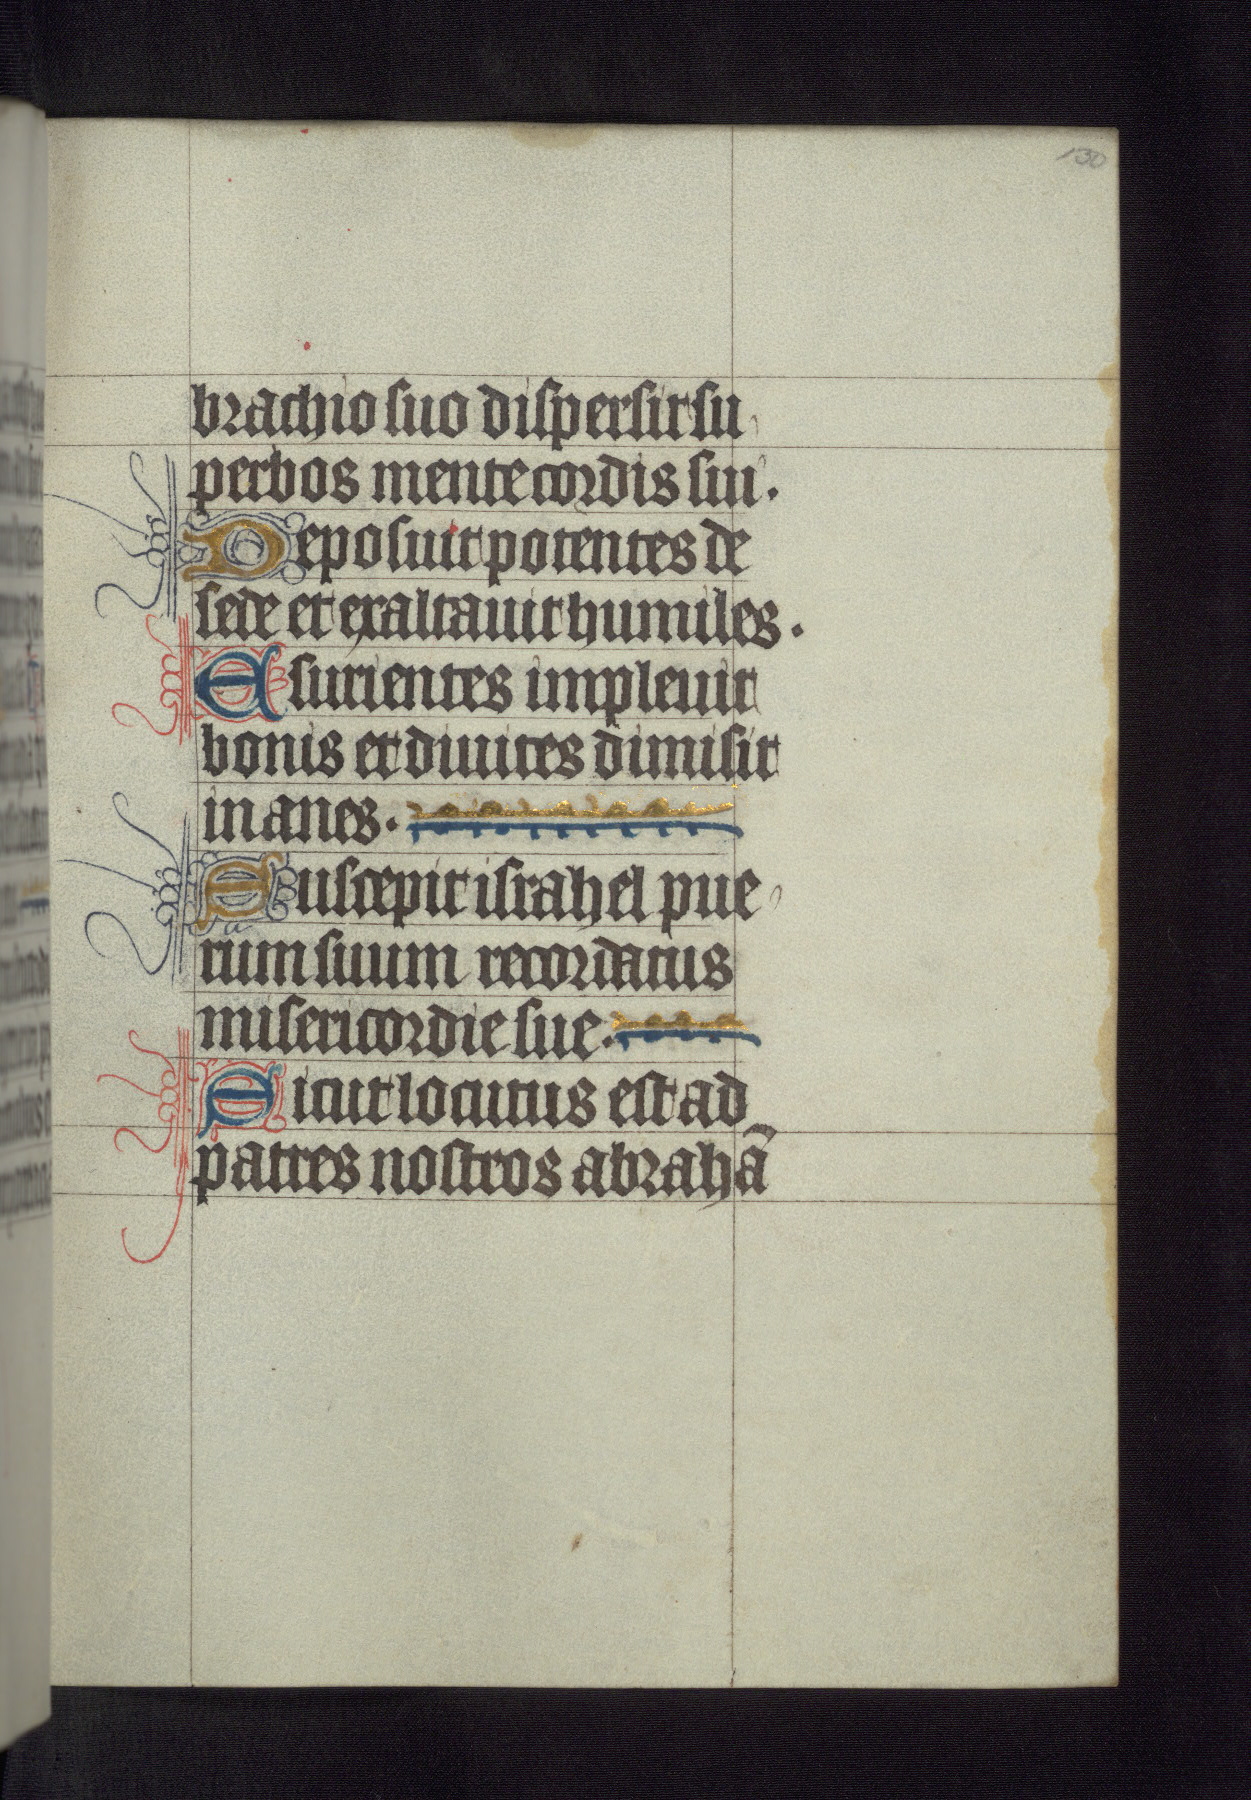 130
brachio suo dispersit su
perbos mente cordis sui.
Deposuit potentes de
sede et exaltauit humiles.
Esurientes impleuit
bonis et diuites dimisit
inanes.
Suscepit israhel pue
rum suum recordatus
misericordie sue.
Sicut locutus est ad
patres nostros abrahā